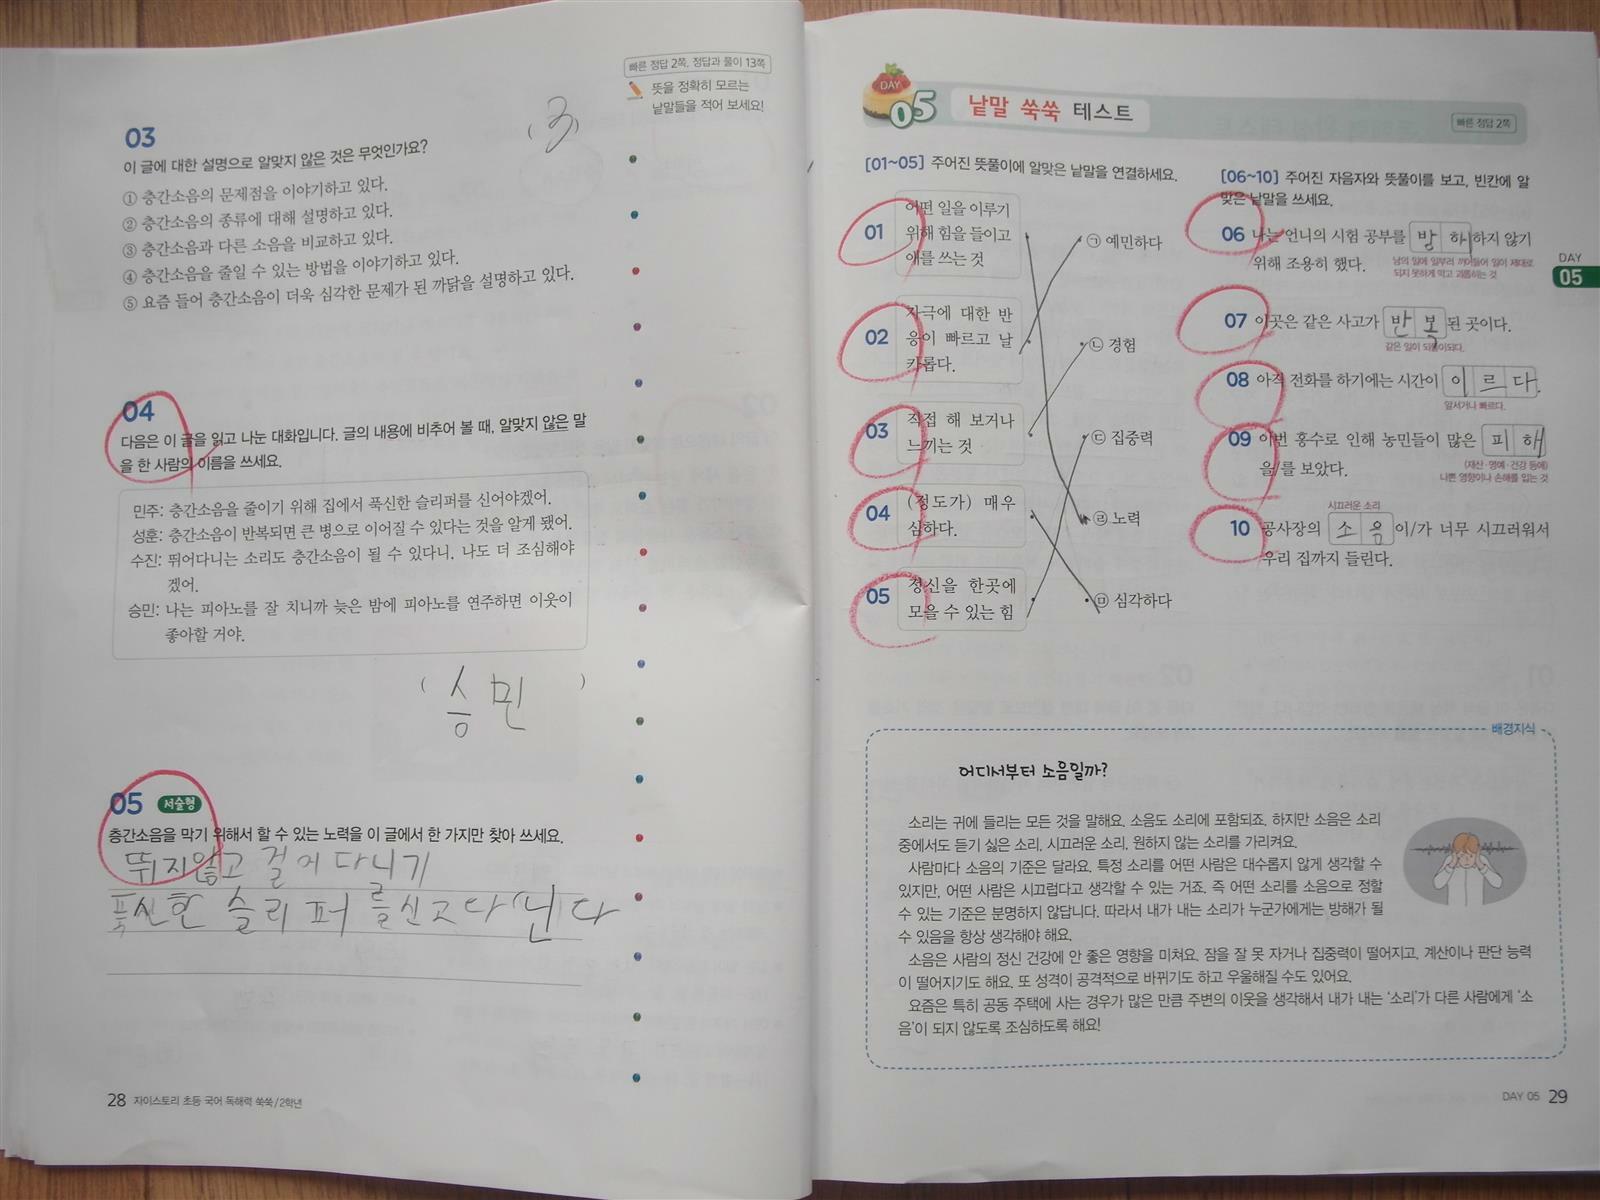 빠른 정답 2쪽, 정답과 풀이 13쪽
뜻을 정확히 모르는
낱말들을 적어 보세요!
03
(3)
이 글에 대한 설명으로 알맞지 않은 것은 무엇인가요?
① 층간소음의 문제점을 이야기하고 있다.
② 층간소음의 종류에 대해 설명하고 있다.
③ 층간소음과 다른 소음을 비교하고 있다.
④ 층간소음을 줄일 수 있는 방법을 이야기하고 있다.
⑤ 요즘 들어 층간소음이 더욱 심각한 문제가 된 까닭을 설명하고 있다.
04
다음은 이 글을 읽고 나눈 대화입니다. 글의 내용에 비추어 볼 때, 알맞지 않은 말
을 한 사람의 이름을 쓰세요.
민주: 층간소음을 줄이기 위해 집에서 푹신한 슬리퍼를 신어야겠어.
성훈: 층간소음이 반복되면 큰 병으로 이어질 수 있다는 것을 알게 됐어.
수진: 뛰어다니는 소리도 층간소음이 될 수 있다니. 나도 더 조심해야
겠어.
승민: 나는 피아노를 잘 치니까 늦은 밤에 피아노를 연주하면 이웃이
좋아할 거야.
(승민)
05 서술형
층간소음을 막기 위해서 할 수 있는 노력을 이 글에서 한 가지만 찾아 쓰세요.
뛰지않고 걸어다니기
푹신한 슬리퍼를신고다닌다
28 자이스토리 초등 국어 독해력 쑥쑥/2학년
DAY 05 낱말 쑥쑥 테스트
빠른 정답 2쪽
[01~05] 주어진 뜻풀이에 알맞은 낱말을 연결하세요.
01 어떤 일을 이루기
위해 힘을 들이고
애를 쓰는 것
02 자극에 대한 반
응이 빠르고 날
카롭다.
03 직접 해 보거나
느끼는 것
04 (정도가) 매우
심하다.
05 정신을 한곳에
모을 수 있는 힘
㉠ 예민하다
㉡ 경험
㉢ 집중력
㉣ 노력
㉤ 심각하다
[06~10] 주어진 자음자와 뜻풀이를 보고, 빈칸에 알
맞은 낱말을 쓰세요.
06 나는 언니의 시험 공부를 방해하지 않기
남의 일에 일부러 끼어들어 일이 제대로
되지 못하게 막고 괴롭히는 것
위해 조용히 했다.
07 이곳은 같은 사고가 반복된 곳이다.
같은 일이 되풀이되다.
08 아직 전화를 하기에는 시간이 이르다.
앞서거나 빠르다.
09 이번 홍수로 인해 농민들이 많은 피해
을/를 보았다.
(재산·명예·건강 등에)
나쁜 영향이나 손해를 입는 것
시끄러운 소리
10 공사장의 소음이/가 너무 시끄러워서
우리 집까지 들린다.
DAY
05
배경지식
어디서부터 소음일까?
소리는 귀에 들리는 모든 것을 말해요. 소음도 소리에 포함되죠. 하지만 소음은 소리
중에서도 듣기 싫은 소리, 시끄러운 소리, 원하지 않는 소리를 가리켜요.
사람마다 소음의 기준은 달라요. 특정 소리를 어떤 사람은 대수롭지 않게 생각할 수
있지만, 어떤 사람은 시끄럽다고 생각할 수 있는 거죠. 즉 어떤 소리를 소음으로 정할
수 있는 기준은 분명하지 않답니다. 따라서 내가 내는 소리가 누군가에게는 방해가 될
수 있음을 항상 생각해야 해요.
소음은 사람의 정신 건강에 안 좋은 영향을 미쳐요. 잠을 잘 못 자거나 집중력이 떨어지고, 계산이나 판단 능력
이 떨어지기도 해요. 또 성격이 공격적으로 바뀌기도 하고 우울해질 수도 있어요.
요즘은 특히 공동 주택에 사는 경우가 많은 만큼 주변의 이웃을 생각해서 내가 내는 '소리'가 다른 사람에게 '소
음'이 되지 않도록 조심하도록 해요!
DAY 05 29